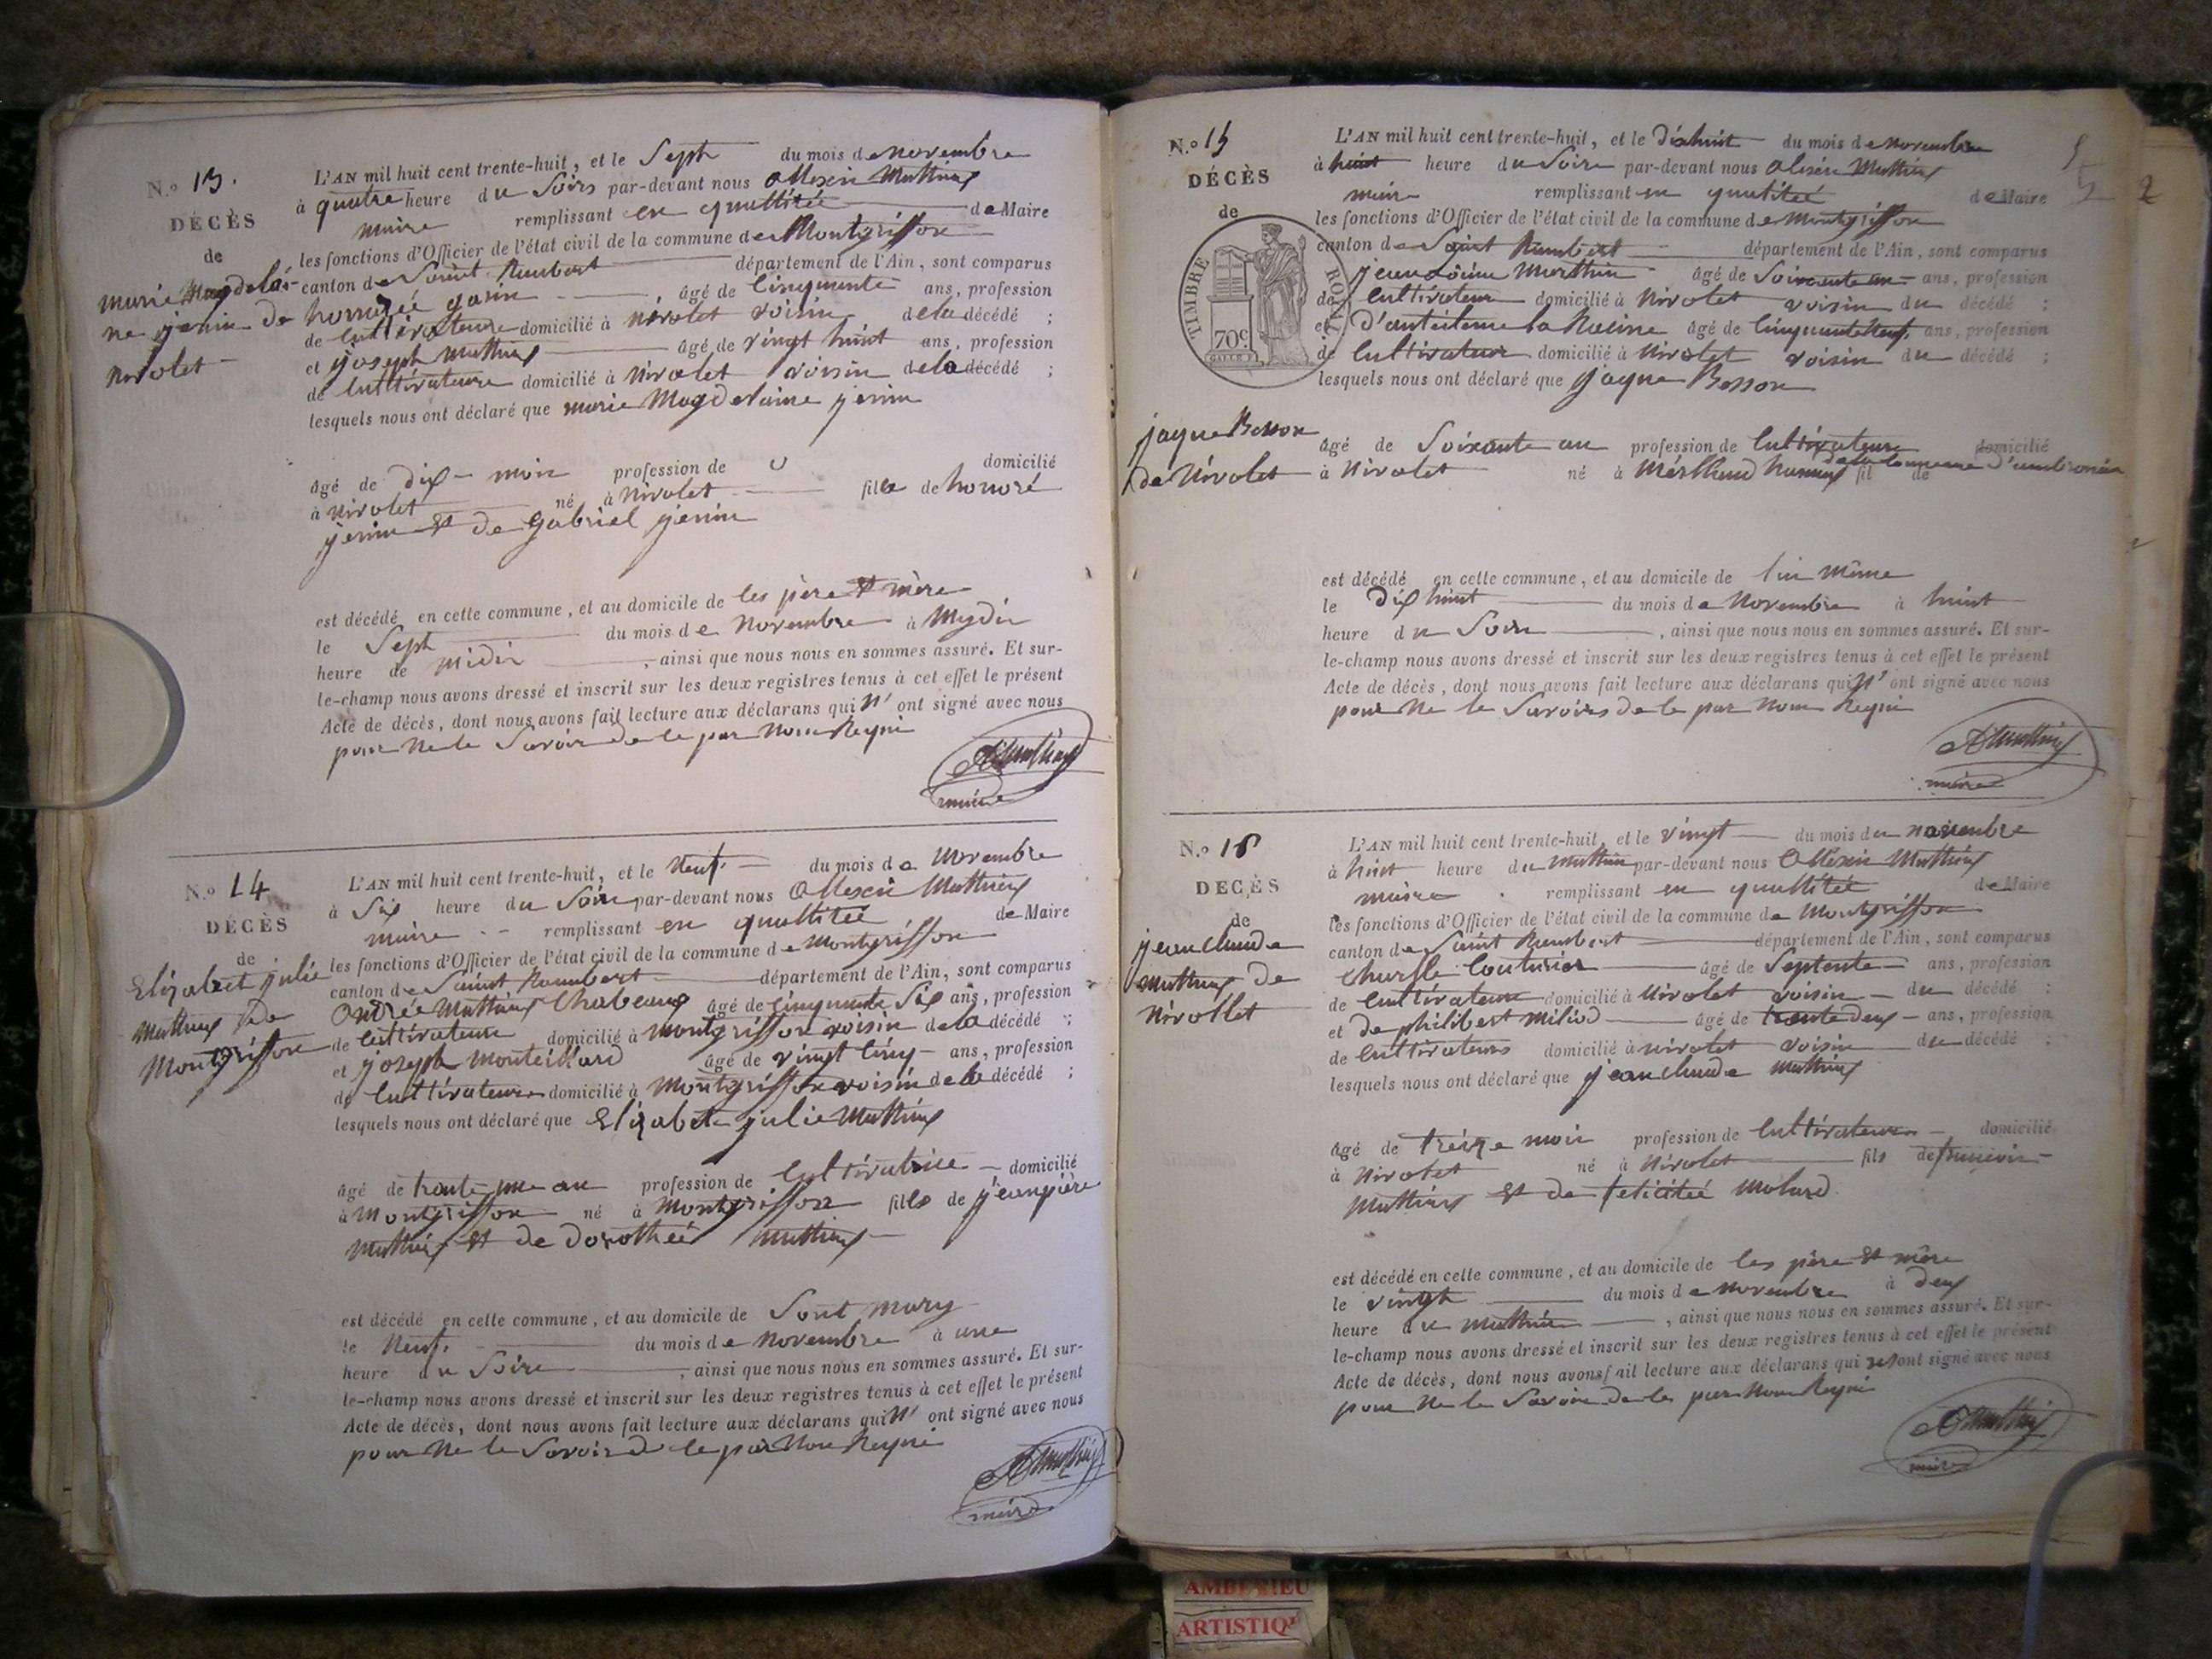 N.o 13.
DÉCÈS
de
marie Magdelai-
ne jenin de
nivolet
L'AN mil huit cent trente-huit, et le Sept du mois de novembre
à quatre heure du Soirs par-devant nous allexin Mathieux
maire remplissant en quallitée de Maire
les fonctions d'Officier de l'état civil de la commune de Montgriffon
canton de Saint Rambert département de l'Ain, sont comparus
honnorée âgé de cinquente ans, profession
de cultivateure domicilié à nivolet voisin de la décédé ;
et joseph Mathieux âgé de vingt huint ans, profession
de cultivateure domicilié à Nivolet voisin de la décédé ;
lesquels nous ont déclaré que marie Magdelaine jenin
âgé de dix- mois profession de domicilié
à nivolet né à nivolet fille de honoré
jenin et de gabriel jenin
est décédé en cette commune, et au domicile de ces père et mère
le Sept du mois de Novembre à Mydis
heure de midis , ainsi que nous nous en sommes assuré. Et sur-
le-champ nous avons dressé et inscrit sur les deux registres tenus à cet effet le présent
Acte de décès, dont nous avons fait lecture aux déclarans qui N' ont signé avec nous
pour Ne le Savoir de ce par Nous Requi
AMathieux
maire
N.o 14
DÉCÈS
de
Elizabet julie
Mathieux de
Montgriffon
L'AN mil huit cent trente-huit, et le Neuf. du mois de Novembre
à Six heure du Soire par-devant nous Allexis Mathieux
maire remplissant en quallitée de Maire
les fonctions d'Officier de l'état civil de la commune de Montgriffon
canton de Saint Rambert département de l'Ain, sont comparus
Andrée Mathieux Chabeaux âgé de cinquante Six ans, profession
de cultivateure domicilié à Montgriffon voisin de la décédé ;
et joseph Monteillard âgé de vingt cinq ans, profession
de cultivateure domicilié à Montgriffon voisin de la décédé ;
lesquels nous ont déclaré que Elizabete julie Mathieux
âgé de trente une an profession de cultivatrice domicilié
à Montgriffon né à Montgriffon fille de jeanpière
Mathieux et de dorothée Mathieux
est décédé en cette commune, et au domicile de Sont mary
le Neuf. du mois de Novembre à une
heure du Soire , ainsi que nous nous en sommes assuré. Et sur-
le-champ nous avons dressé et inscrit sur les deux registres tenus à cet effet le présent
Acte de décès, dont nous avons fait lecture aux déclarans qui N' ont signé avec nous
pour Ne le Savoir de ce par Nous Requi
AMathieux
maire
N.o 15
DÉCÈS
de
TIMBRE ROYAL
70c
jaque Besson
de Nivolet
L'AN mil huit cent trente-huit, et le dixhuit du mois de novembre
à huint heure du Soire par-devant nous alexis Mathieux
maire remplissant en qualiteé de Maire
les fonctions d'Officier de l'état civil de la commune de Montgriffon
canton de Saint Rambert département de l'Ain, sont comparus
Marthin âgé de Soixante an ans, profession
de cultivateure domicilié à Nivolet voisin du décédé ;
et d'anteleme la Racine âgé de cinquante neuf, ans, profession
de cultivateur domicilié à Nivolet voisin du décédé ;
lesquels nous ont déclaré que jaque Besson
âgé de Soixante an profession de cultivateure domicilié
à Nivolet né à de la commune d'ambronais fil de
est décédé en cette commune, et au domicile de lui même
le Dix huint du mois de Novembre à huint
heure du Soire , ainsi que nous nous en sommes assuré. Et sur-
le-champ nous avons dressé et inscrit sur les deux registres tenus à cet effet le présent
Acte de décès, dont nous avons fait lecture aux déclarans qui N' ont signé avec nous
pour Ne le Savoirs de ce par Nous Requi
AMathieux
maire
N.o 16
DECÈS
de
jean claude
Mathieux de
Nivollet
L'AN mil huit cent trente-huit, et le vingt du mois de novembre
à huint heure du Mathin par-devant nous Allexis Mathieux
maire remplissant en quallitée de Maire
les fonctions d'Officier de l'état civil de la commune de Montgriffon
canton de Saint Rambert département de l'Ain, sont comparus
Charsle Couturier âgé de Septente ans, profession
de cultivateure domicilié à Nivolet voisin du décédé ;
et de philibert Miliod âgé de trente deux ans, profession
de cultivateurs domicilié à nivolet voisin du décédé ;
lesquels nous ont déclaré que jean claude Mathieux
âgé de treize mois profession de cultivateure domicilié
à Nivolet né à Nivolet fils de francois
Mathieux et de felicitée Molard
est décédé en cette commune, et au domicile de ces père et mère
le vingt du mois de Novembre à deux
heure du Mathin , ainsi que nous nous en sommes assuré. Et sur-
le-champ nous avons dressé et inscrit sur les deux registres tenus à cet effet le présent
Acte de décès, dont nous avons fait lecture aux déclarans qui n'ont signé avec nous
pour Ne le Savoir de ce par Nous Requi
AMathieux
maire
AMBERIEU
ARTISTIQU